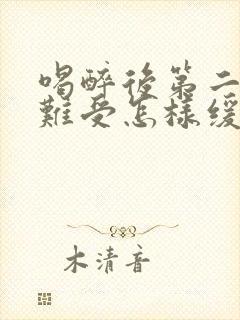 喝醉後第二
難受怎樣緩
木清音